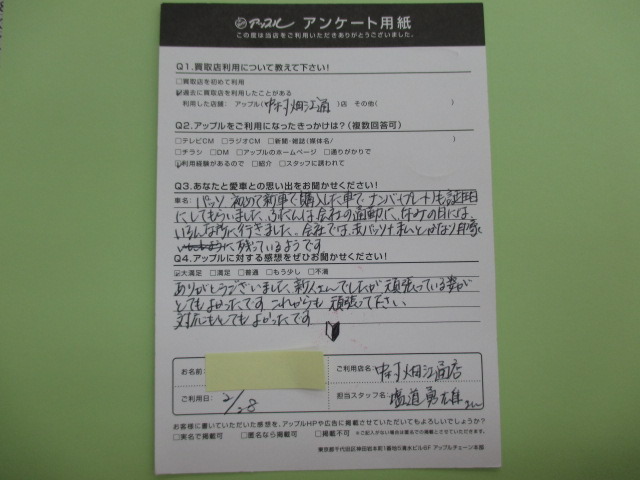 アップル アンケート用紙
この度は当店をご利用いただきありがとうございました。
Q1.買取店利用について教えて下さい！
□買取店を初めて利用
☑過去に買取店を利用したことがある
利用した店舗: アップル(中村畑江通)店 その他( )
Q2.アップルをご利用になったきっかけは？(複数回答可)
□テレビCM □ラジオCM □新聞・雑誌(媒体名/ )
□チラシ □DM □アップルのホームページ □通りがかりで
☑利用経験があるので □紹介 □スタッフに誘われて
Q3.あなたと愛車との思い出をお聞かせください！
車名: パッソ 初めて新車で購入した車で、ナンバープレートも誕生日
にしてもらいました。ふだんは会社の通勤に、休みの日には、
いろんな所に行きました。会社では、赤パッソ＝まいとかなり印象
に残っているようです
Q4.アップルに対する感想をぜひお聞かせください！
☑大満足 □満足 □普通 □もう少し □不満
ありがとうございました。新人さんでしたが頑張っている姿が
とてもよかったです これからも頑張って下さい。
対応もとてもよかったです
お名前:
ご利用店名: 中村畑江通店
ご利用日: 2/28
担当スタッフ名: 塩道勇雄さん
お客様に書いていただいた感想を、アップルHPや広告に掲載させていただいてもよろしいでしょうか？
□実名で掲載可 □匿名なら掲載可 □掲載不可 ※ご記入がない場合は匿名での掲載とさせていただきます。
東京都千代田区神田岩本町1番地5清水ビル6F アップルチェーン本部